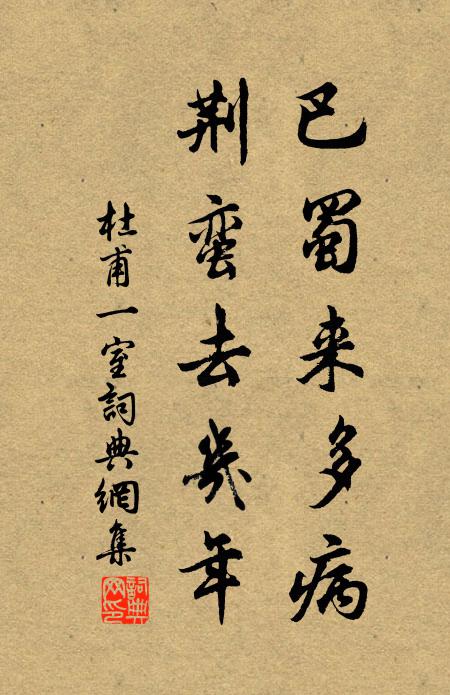 巴蜀来多病
荆蛮去幾年
杜甫一室詞典網集
詞典网印